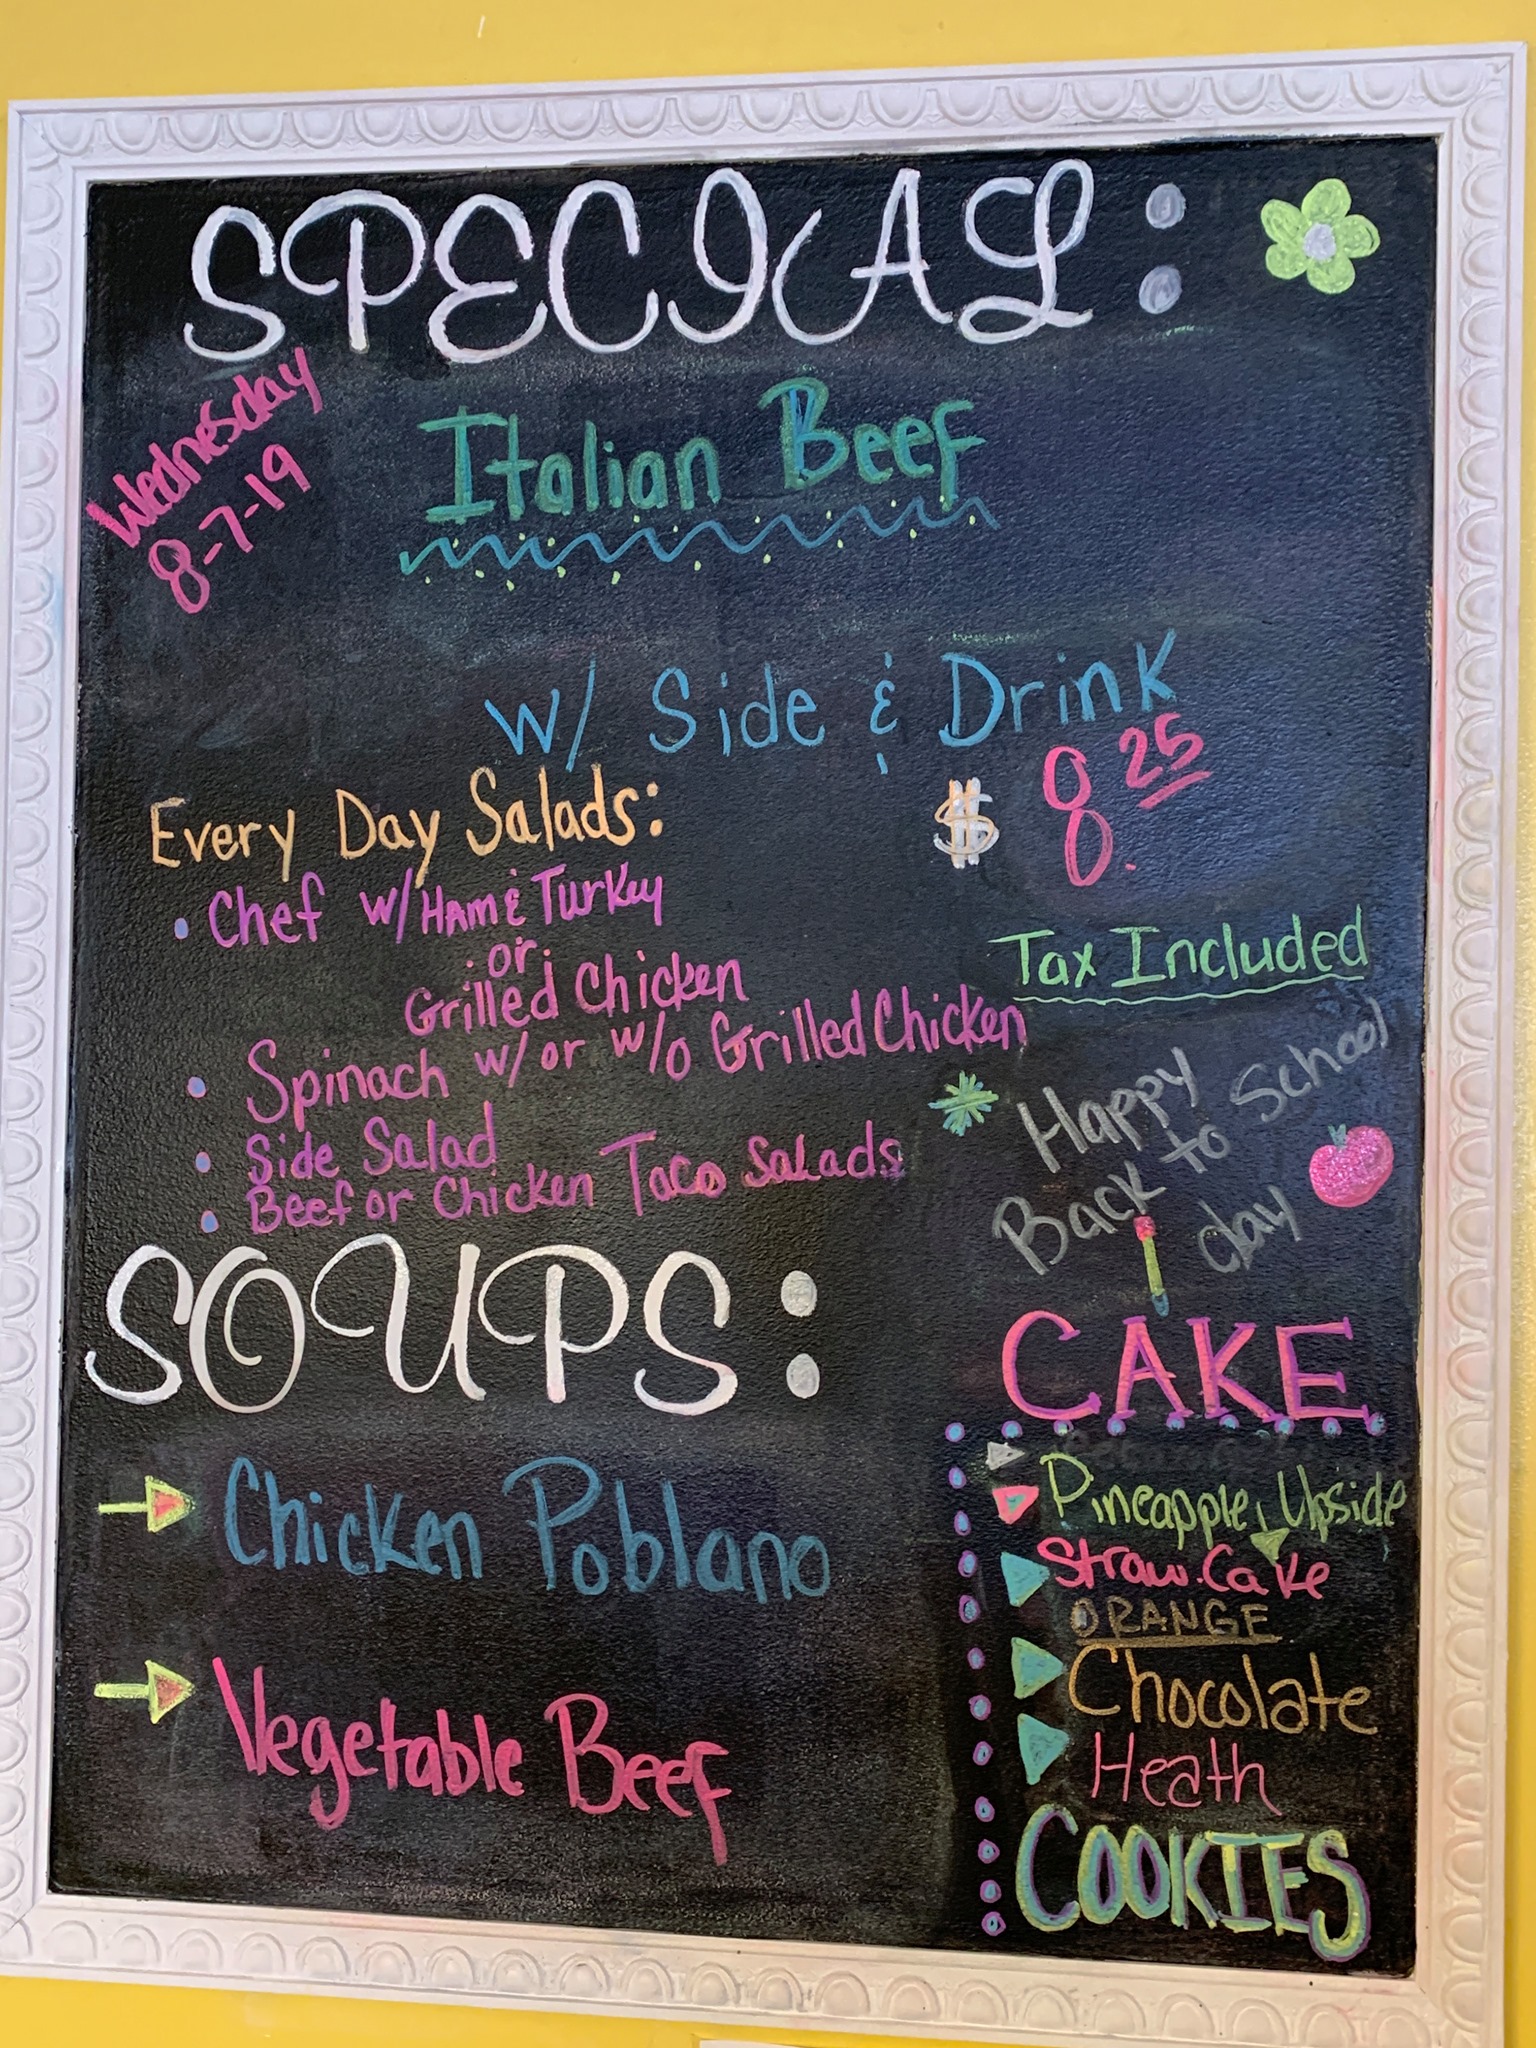 SPECIAL:
Wednesday
8-7-19
Italian Beef
w/ Side & Drink
$ 8.25
Tax Included
Every Day Salads:
• Chef w/ Ham & Turkey
or
Grilled Chicken
• Spinach w/ or w/o Grilled Chicken
• Side Salad
• Beef or Chicken Taco Salads
Happy
Back to School
day
SOUPS:
Chicken Poblano
Vegetable Beef
CAKE
Pineapple Upside
Straw. Cake
ORANGE
Chocolate
Heath
COOKIES